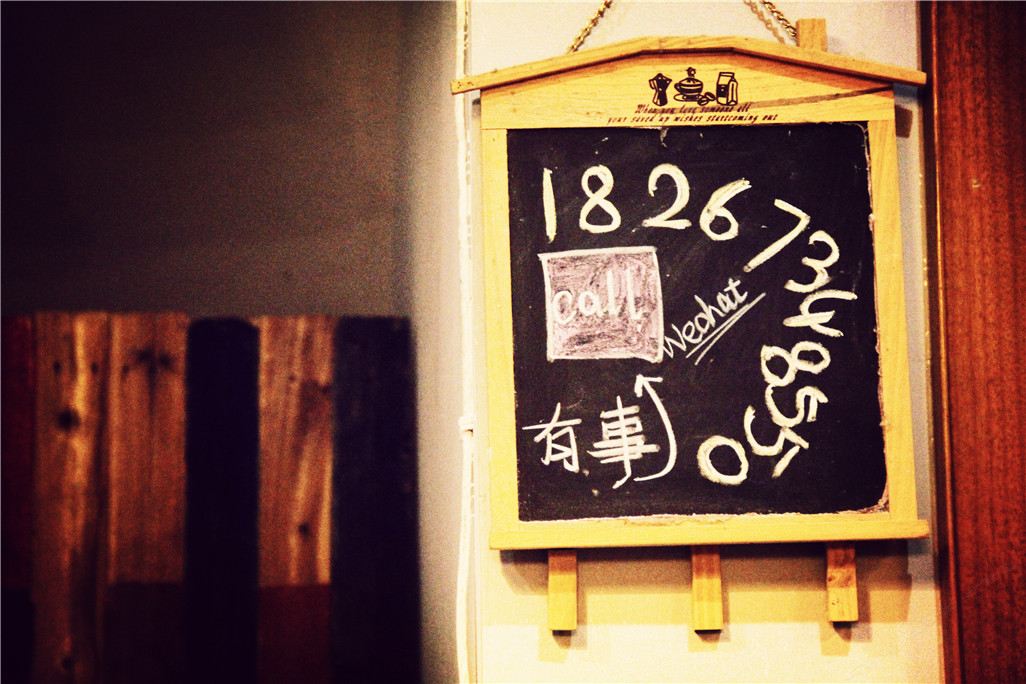 When you love someone all
your saved up wishes startcoming out
18267348550
call
Wechat
有事